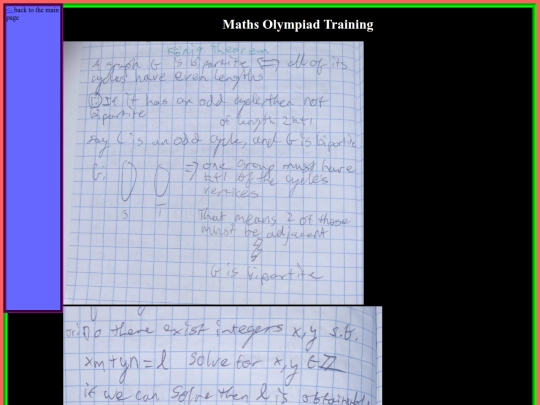 <- back to the main
page
Maths Olympiad Training
König theorem
A graph G is bipartite <=> all of its
cycles have even lengths
If it has an odd cycle then not
bipartite
of length 2k+1
Say C is an odd cycle, and G is bipartite
G:
=> one group must have
k+1 of the cycles
vertices
S T
That means 2 of those
must be adjacent
G is bipartite
Do there exist integers x, y s.t.
xm+yn=l solve for x,y ∈ Z
if we can solve then l is obtainable